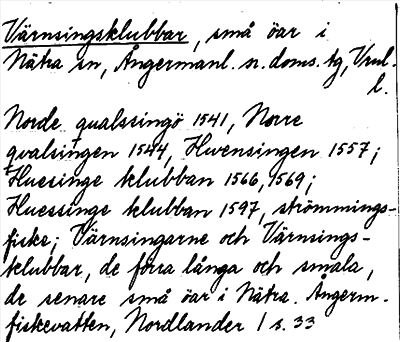 Värnsingsklubbar, små öar i
Nätra sn, Ångermanl. n. doms. tg, Vnl.
l.
Norde qualssingö 1541, Norre
qvalsingen 1544, Hwensingen 1557;
Huesinge klubban 1566, 1569;
Huessinge klubban 1597, strömmings-
fiske; Värnsingarne och Värnsings-
klubbar, de förra långa och smala,
de senare små öar i Nätra. Ångerm.
fiskevatten, Nordlander 1 s. 33